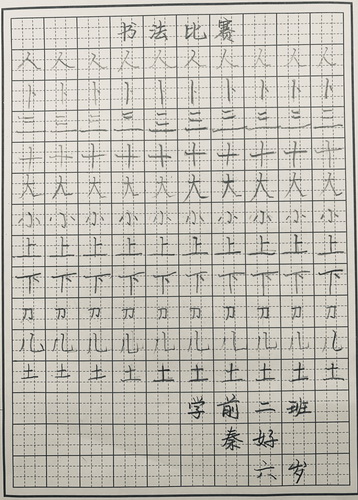 书法比赛
人人人人人人人人人人
卜卜卜卜卜卜卜卜卜卜
三三三三三三三三三三
十十十十十十十十十十
大大大大大大大大大大
小小小小小小小小小小
上上上上上上上上上上
下下下下下下下下下下
刀刀刀刀刀刀刀刀刀刀
儿儿儿儿儿儿儿儿儿儿
土土土土土土土土土土
学前二班
秦好
六岁